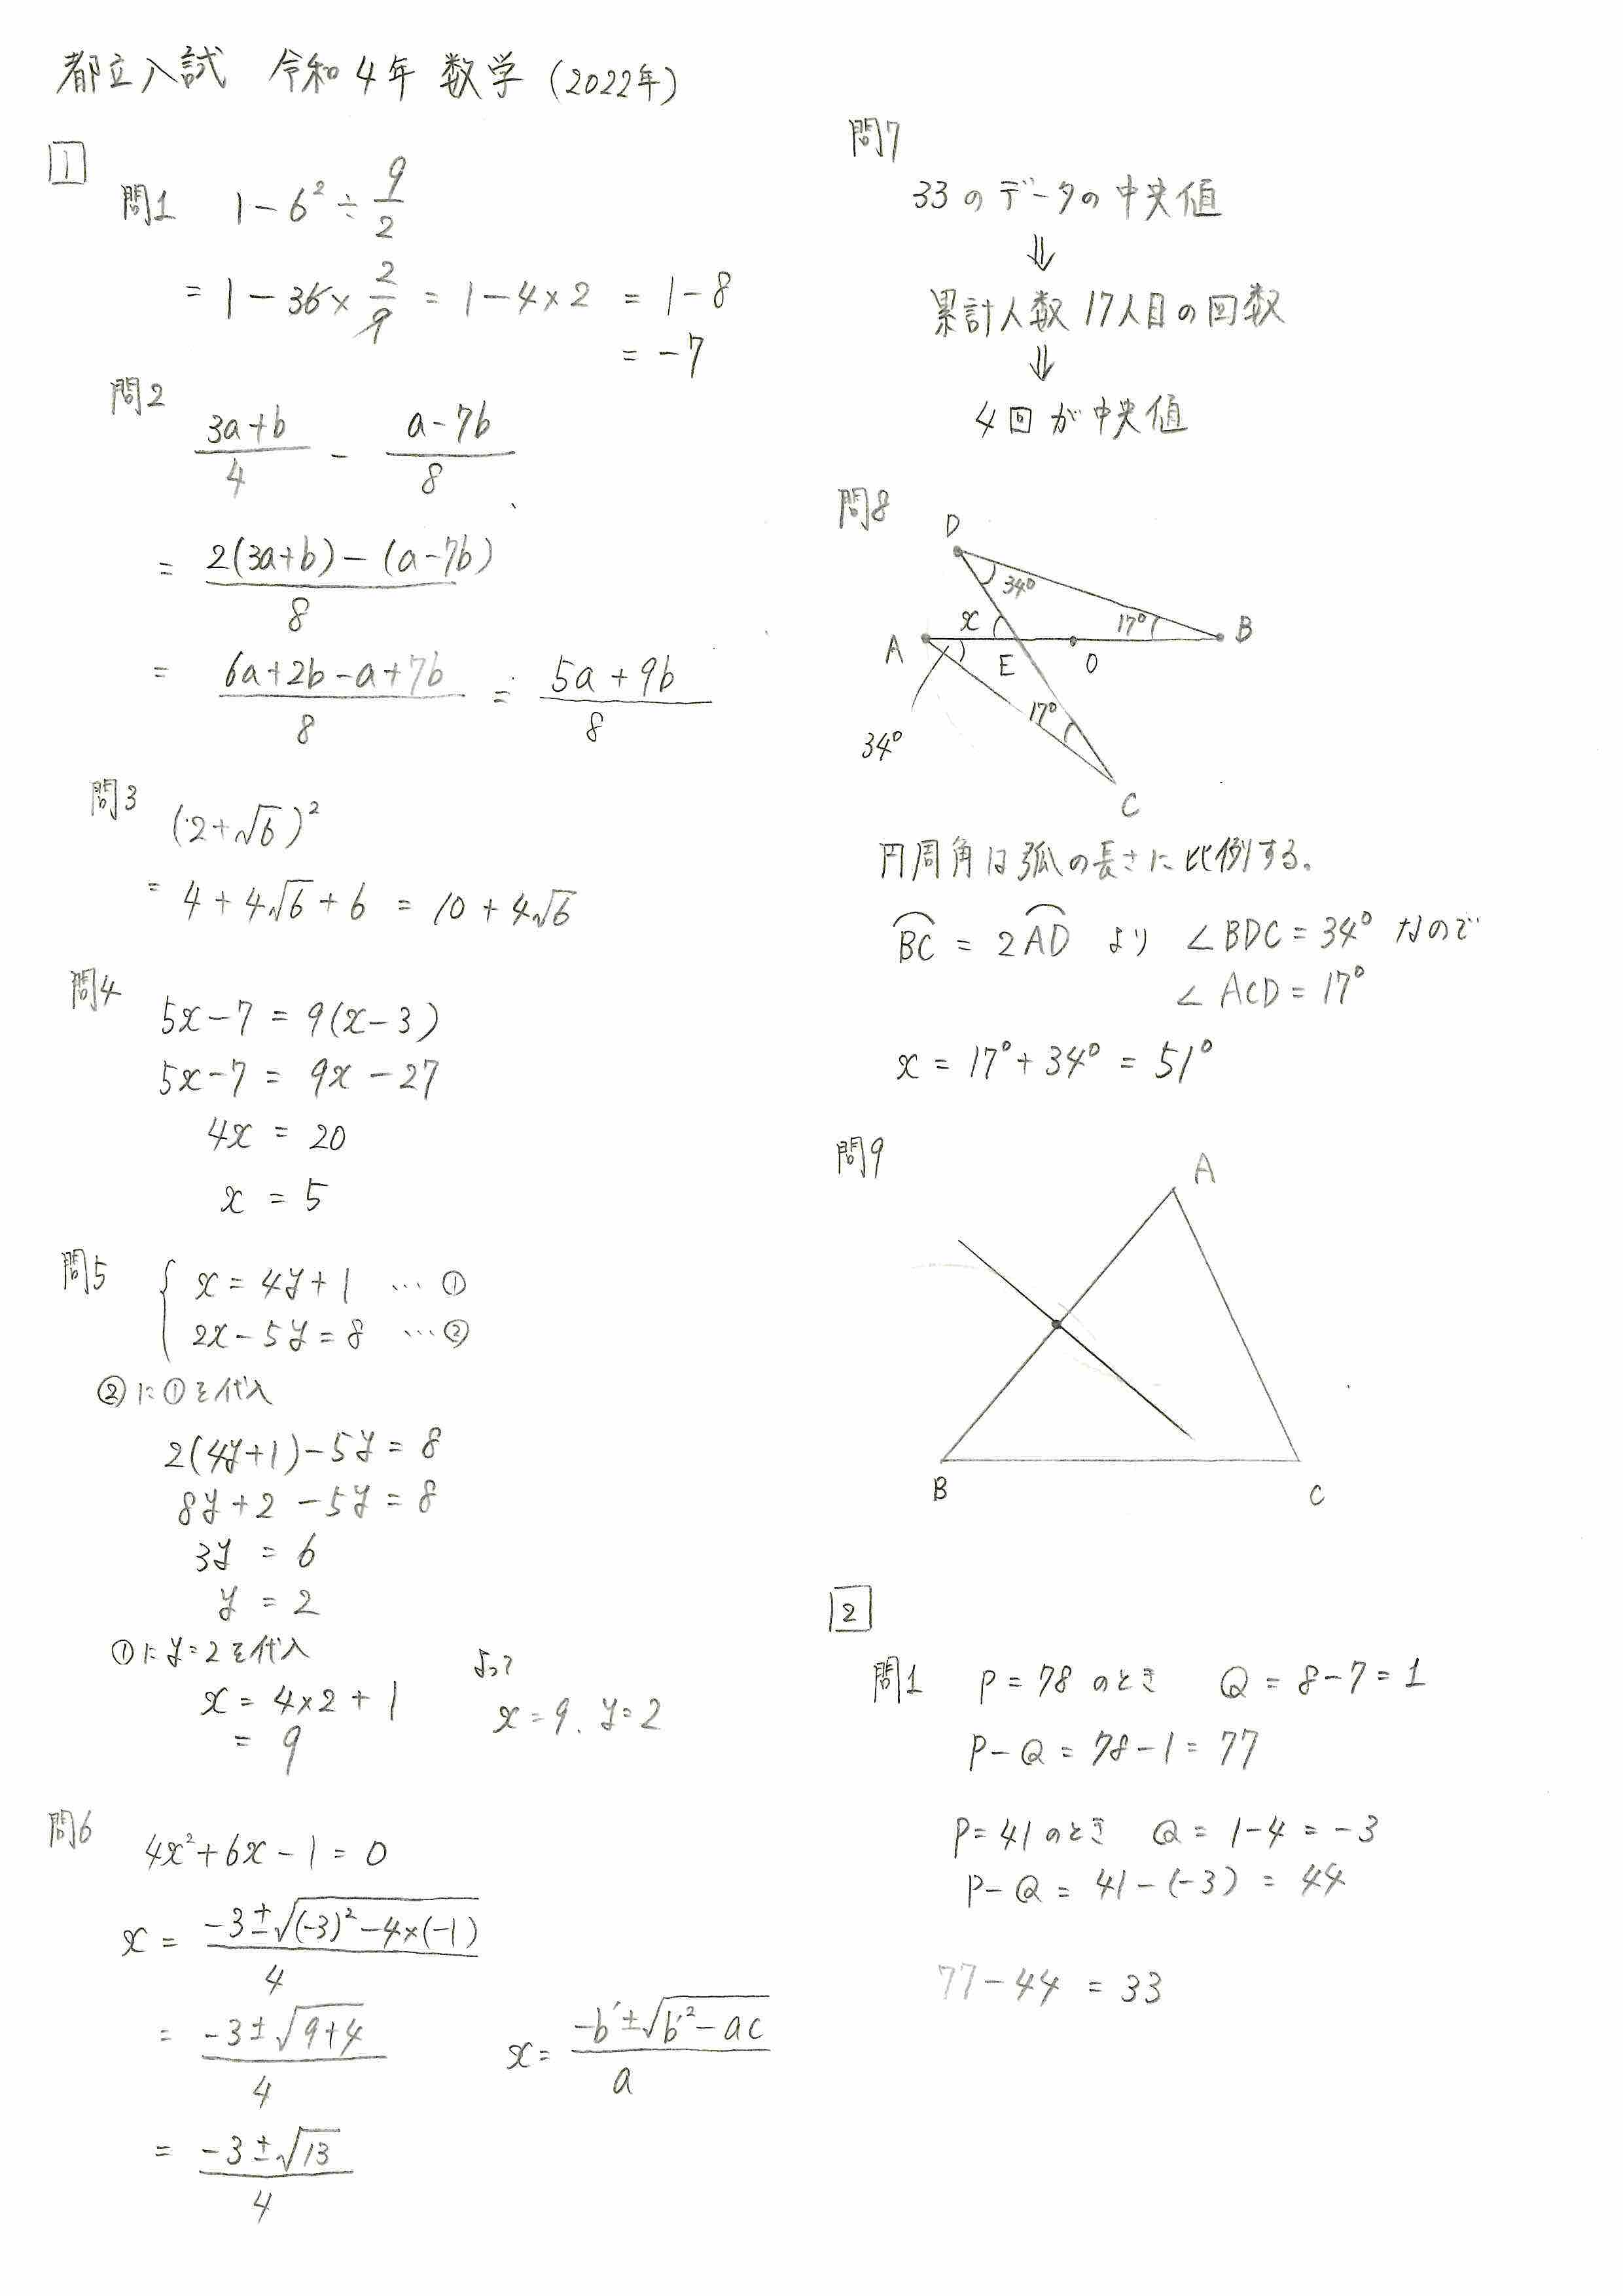 都立入試 令和4年 数学 (2022年)
1
問1 1-6² ÷ 9/2
= 1-36× 2/9 = 1-4×2 = 1-8
= -7
問2
(3a+b)/4 - (a-7b)/8
= (2(3a+b)-(a-7b))/8
= (6a+2b-a+7b)/8 = (5a+9b)/8
問3
(2+√6)²
= 4+4√6+6 = 10+4√6
問4
5x-7 = 9(x-3)
5x-7 = 9x-27
4x = 20
x = 5
問5
{ x=4y+1 … ①
2x-5y=8 … ②
②に①を代入
2(4y+1)-5y=8
8y+2-5y=8
3y = 6
y = 2
①にy=2を代入
x = 4×2+1
= 9
よって
x=9. y=2
問6
4x²+6x-1=0
x = (-3±√((-3)²-4×(-1)))/4
= (-3±√(9+4))/4
x = (-b′±√(b′²-ac))/a
= (-3±√13)/4
問7
33のデータの中央値
⇓
累計人数17人目の回数
⇓
4回が中央値
問8
D
34°
x
17°
B
A
E
O
17°
34°
C
円周角は弧の長さに比例する。
⌒BC = 2⌒AD より ∠BDC=34° なので
∠ACD=17°
x = 17°+34° = 51°
問9
A
B
C
2
問1 P=78のとき Q = 8-7=1
P-Q = 78-1=77
P=41のとき Q = 1-4 = -3
P-Q = 41-(-3) = 44
77-44 = 33